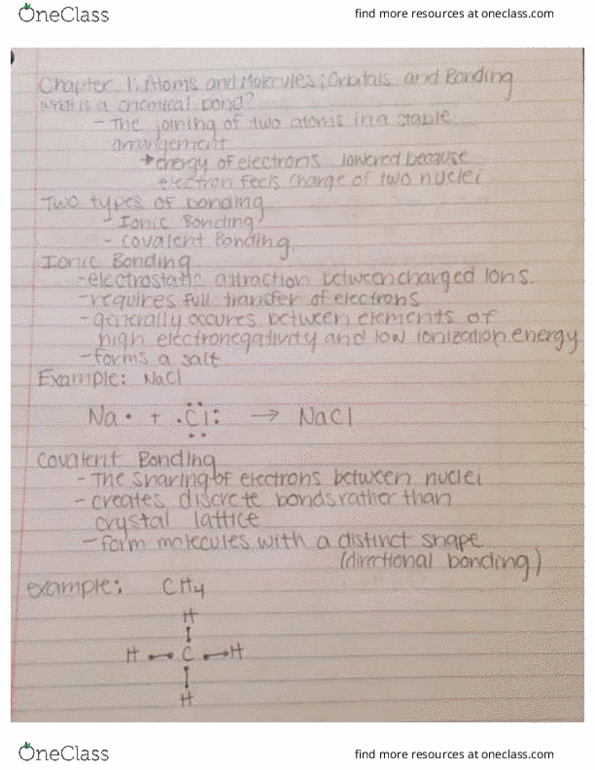 OneClass
find more resources at oneclass.com
Chapter 1: Atoms and Molecules; Orbitals and Bonding
What is a chemical bond?
- The joining of two atoms in a stable
arrangement
→ energy of electrons lowered because
electron feels charge of two nuclei
Two types of bonding
- Ionic Bonding
- Covalent Bonding
Ionic Bonding
- electrostatic attraction between charged Ions.
- requires full transfer of electrons
- generally occures between elements of
high electronegativity and low ionization energy
- forms a salt
Example: NaCl
Na· + .Cl: → NaCl
Covalent Bonding
- The sharing of electrons between nuclei
- creates discrete bonds rather than
crystal lattice
- form molecules with a distinct shape
(directional bonding)
example: CH4
H
H C H
H
OneClass
find more resources at oneclass.com